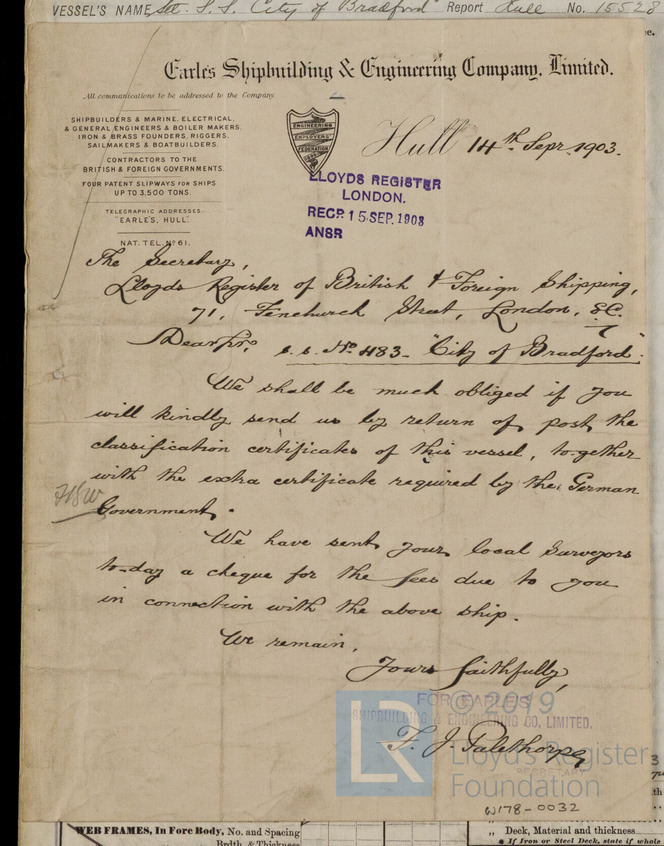 VESSEL'S NAME Stl. S.S. City of Bradford Report Hull No. 15528
Earle's Shipbuilding & Engineering Company, Limited.
All communications to be addressed to the Company.
SHIPBUILDERS & MARINE, ELECTRICAL,
& GENERAL ENGINEERS & BOILER MAKERS.
IRON & BRASS FOUNDERS, RIGGERS,
SAILMAKERS & BOATBUILDERS.
CONTRACTORS TO THE
BRITISH & FOREIGN GOVERNMENTS.
FOUR PATENT SLIPWAYS FOR SHIPS
UP TO 3,500 TONS.
TELEGRAPHIC ADDRESSES
"EARLE'S, HULL".
NAT. TEL. Nº 61.
ENGINEERING
EMPLOYERS'
FEDERATION
Hull 14th Sepr. 1903.
LLOYDS REGISTER
LONDON.
RECD. 15 SEP. 1903
ANSR
The Secretary,
Lloyds Register of British & Foreign Shipping,
71, Fenchurch Street, London, E.C.
Dear Sir, s.s. No. 483 - "City of Bradford".
We shall be much obliged if you
will kindly send us by return of post the
classification certificates of this vessel, together
with the extra certificate required by the German
Government.
We have sent your local Surveyors
to-day a cheque for the fees due to you
in connection with the above ship.
We remain,
Yours faithfully,
FOR EARLE'S
SHIPBUILDING & ENGINEERING CO. LIMITED.
F. J. Palethorpe
SECRETARY
© 2019
LR
Lloyd's Register
Foundation
W178-0032
WEB FRAMES, In Fore Body, No. and Spacing
Brdth. & Thickness
„ Deck, Material and thickness
* If Iron or Steel Deck, state if whole